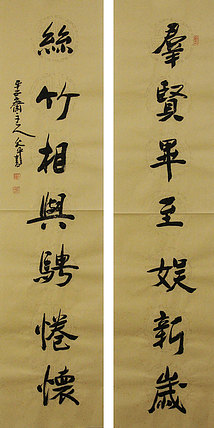 羣賢畢至娛新歲
絲竹相與騁惓懷